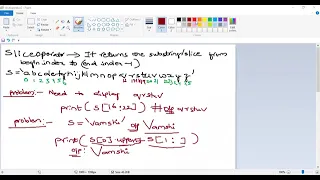 Slice operator → It returns one substring/slice from
begin index to (end index-1)
S = 'abcdefghijklmnopqrstuvwxyz'
0 1 2 3 4 5 6
problem:- Need to display qrstuv
print(S[16:22]) # o/p qrstuv
problem:- S = 'vamshi' o/p Vamshi
print(S[0].upper() + S[1:])
o/p: Vamshi